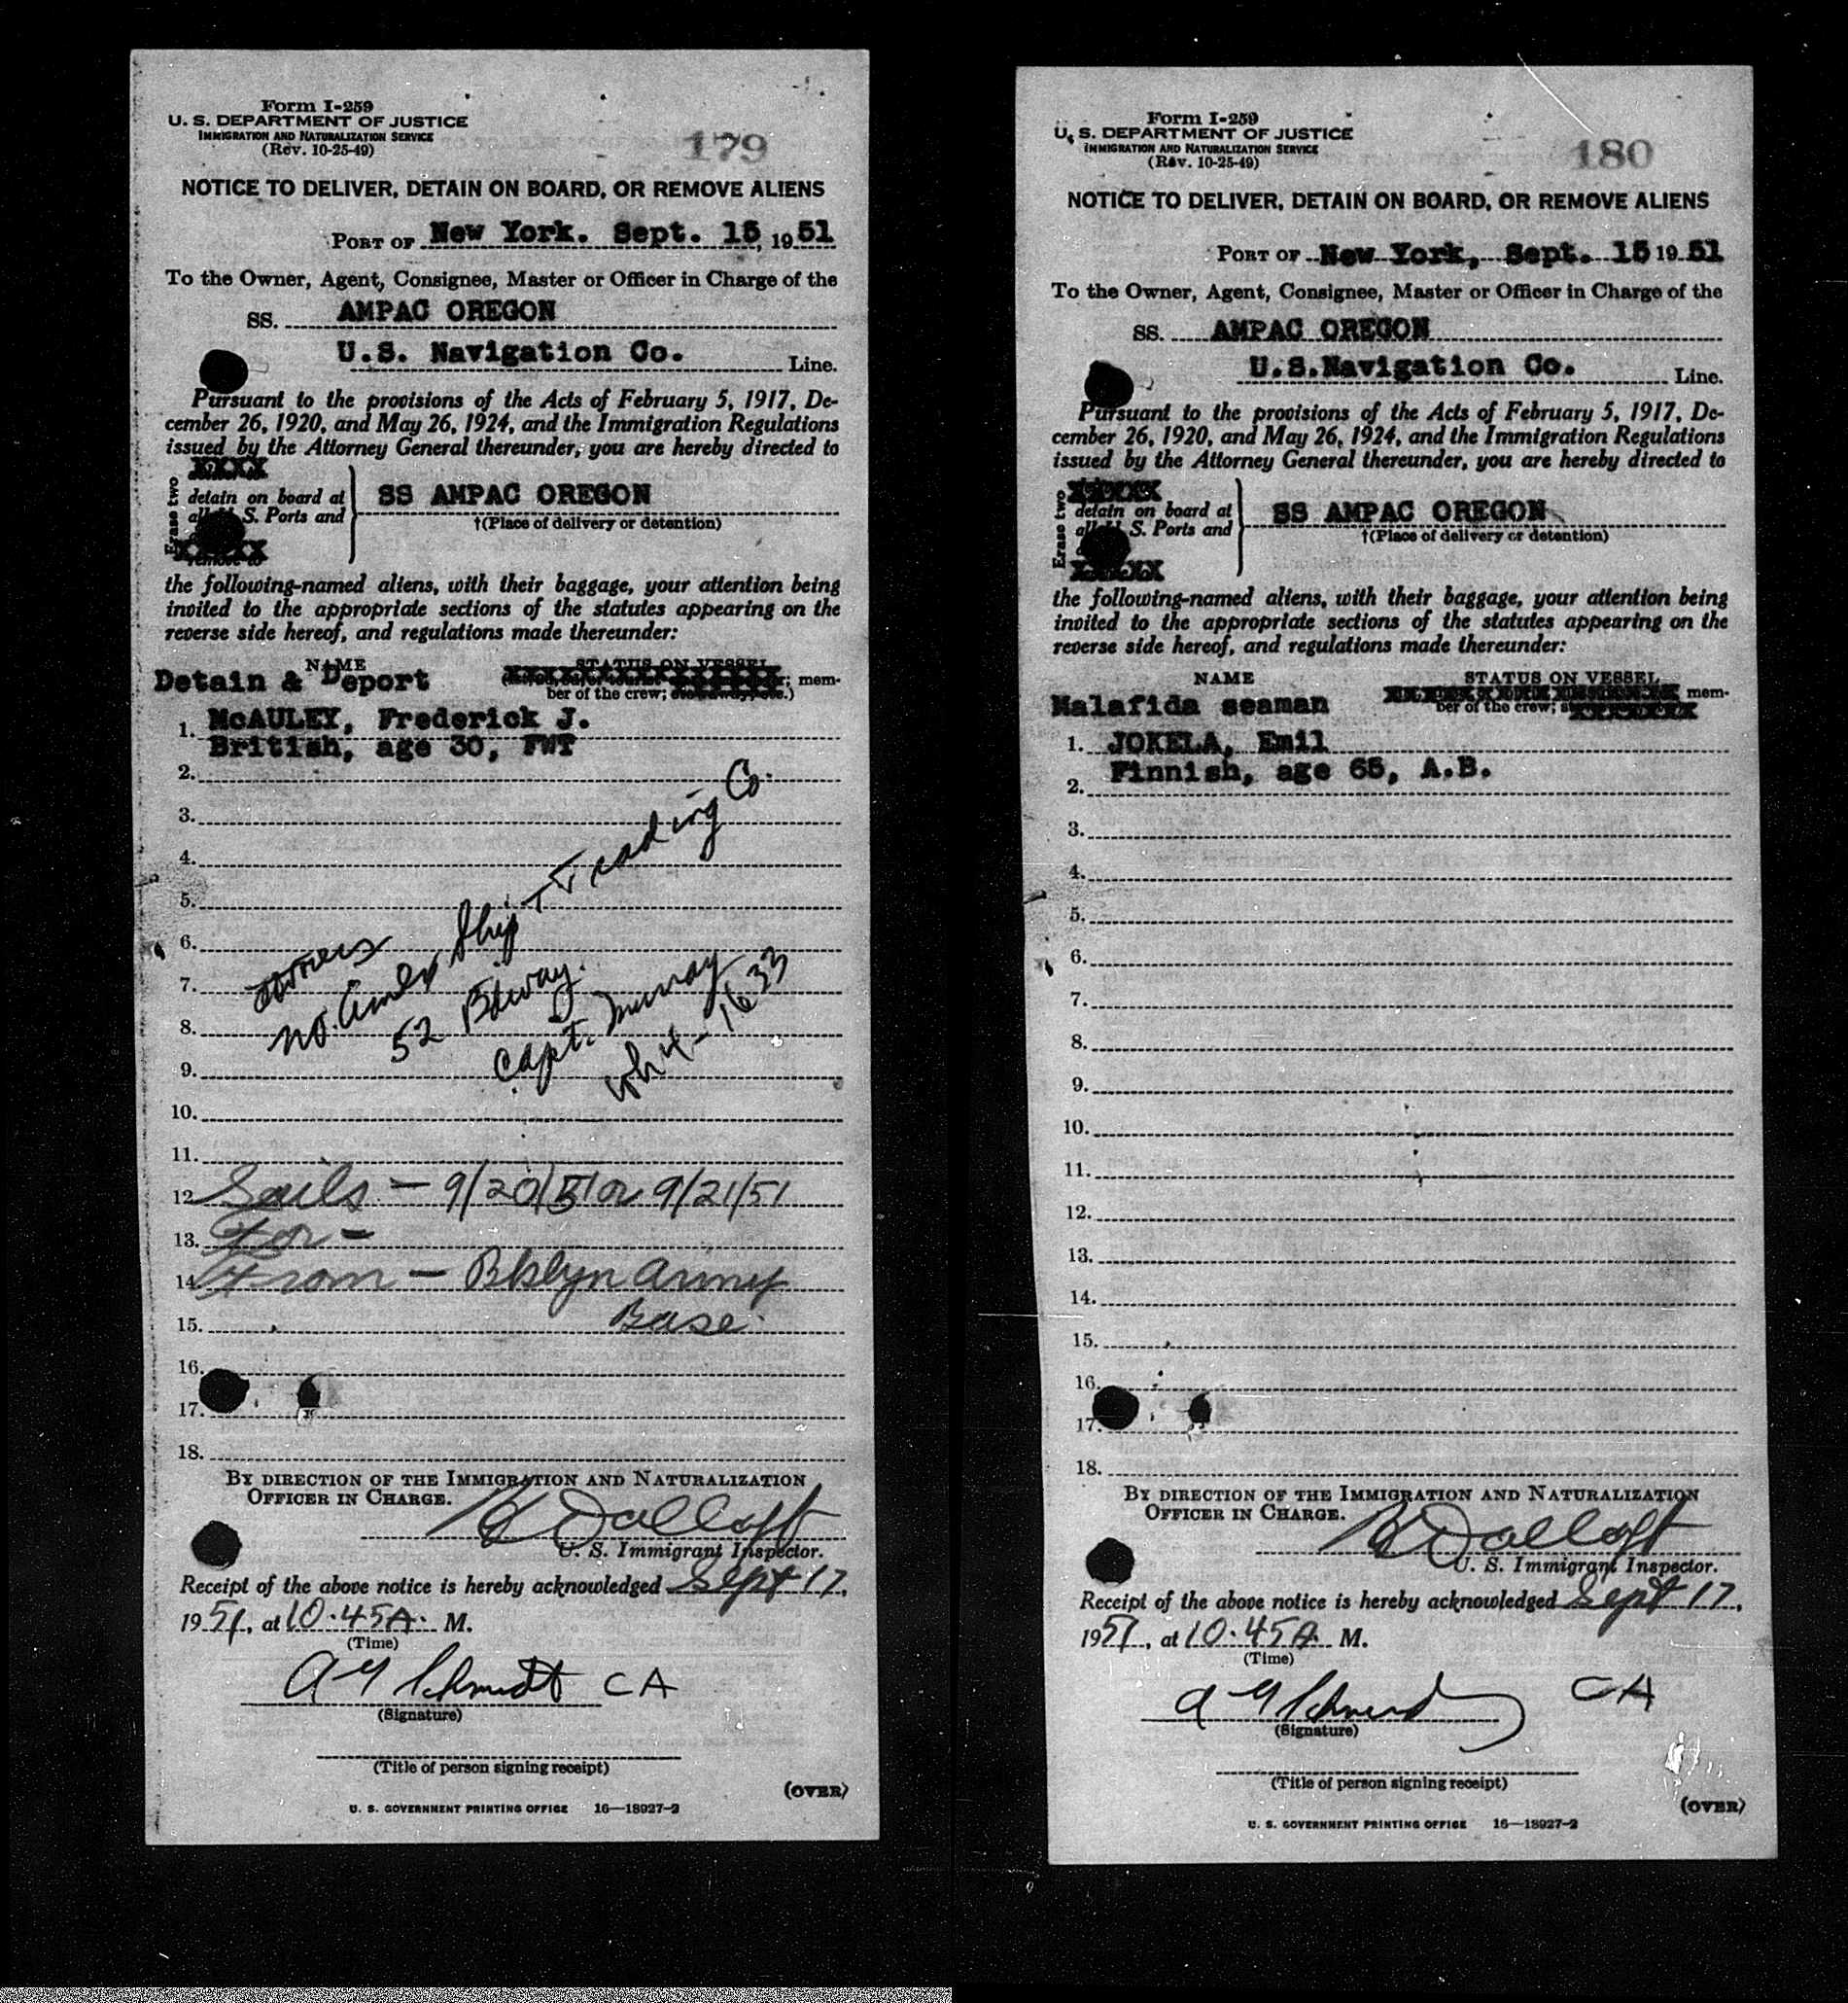 Form I-259
U. S. DEPARTMENT OF JUSTICE
IMMIGRATION AND NATURALIZATION SERVICE
(Rev. 10-25-49)
179
NOTICE TO DELIVER, DETAIN ON BOARD, OR REMOVE ALIENS
PORT OF New York. Sept. 15, 1951
To the Owner, Agent, Consignee, Master or Officer in Charge of the
SS. AMPAC OREGON
U.S. Navigation Co. Line.
Pursuant to the provisions of the Acts of February 5, 1917, De-
cember 26, 1920, and May 26, 1924, and the Immigration Regulations
issued by the Attorney General thereunder, you are hereby directed to
Erase two
XXXX
detain on board at
all U. S. Ports and
XXXXX
remove to
SS AMPAC OREGON
†(Place of delivery or detention)
the following-named aliens, with their baggage, your attention being
invited to the appropriate sections of the statutes appearing on the
reverse side hereof, and regulations made thereunder:
NAME STATUS ON VESSEL
Detain & Deport mem-
ber of the crew;
1. McAULEY, Frederick J.
British, age 30, FWT
2.
3.
4.
5.
6.
7.
8.
9.
10.
11.
owners
No. Amer Ship Trading Co.
52 Bdway.
Capt. Murray
Wh 4-1633
12. Sails - 9/20/51 or 9/21/51
13. For -
14. From - Bklyn Army
15. Base.
16.
17.
18.
BY DIRECTION OF THE IMMIGRATION AND NATURALIZATION
OFFICER IN CHARGE.
U. S. Immigrant Inspector.
Receipt of the above notice is hereby acknowledged Sept 17,
1951, at 10.45 A. M.
(Time)
A Y Schmidt CA
(Signature)
(Title of person signing receipt)
(OVER)
U. S. GOVERNMENT PRINTING OFFICE 16—18927-2
Form I-259
U. S. DEPARTMENT OF JUSTICE
IMMIGRATION AND NATURALIZATION SERVICE
(Rev. 10-25-49)
180
NOTICE TO DELIVER, DETAIN ON BOARD, OR REMOVE ALIENS
PORT OF New York, Sept. 15 1951
To the Owner, Agent, Consignee, Master or Officer in Charge of the
SS. AMPAC OREGON
U.S.Navigation Co. Line.
Pursuant to the provisions of the Acts of February 5, 1917, De-
cember 26, 1920, and May 26, 1924, and the Immigration Regulations
issued by the Attorney General thereunder, you are hereby directed to
Erase two
XXXXX
detain on board at
all U. S. Ports and
XXXXX
SS AMPAC OREGON
†(Place of delivery or detention)
the following-named aliens, with their baggage, your attention being
invited to the appropriate sections of the statutes appearing on the
reverse side hereof, and regulations made thereunder:
NAME STATUS ON VESSEL
Malafida seaman mem-
ber of the crew;
1. JOKELA, Emil
Finnish, age 65, A.B.
2.
3.
4.
5.
6.
7.
8.
9.
10.
11.
12.
13.
14.
15.
16.
17.
18.
BY DIRECTION OF THE IMMIGRATION AND NATURALIZATION
OFFICER IN CHARGE.
U. S. Immigrant Inspector.
Receipt of the above notice is hereby acknowledged Sept 17,
1951, at 10.45 A. M.
(Time)
CA
(Signature)
(Title of person signing receipt)
(OVER)
U. S. GOVERNMENT PRINTING OFFICE 16—18927-2